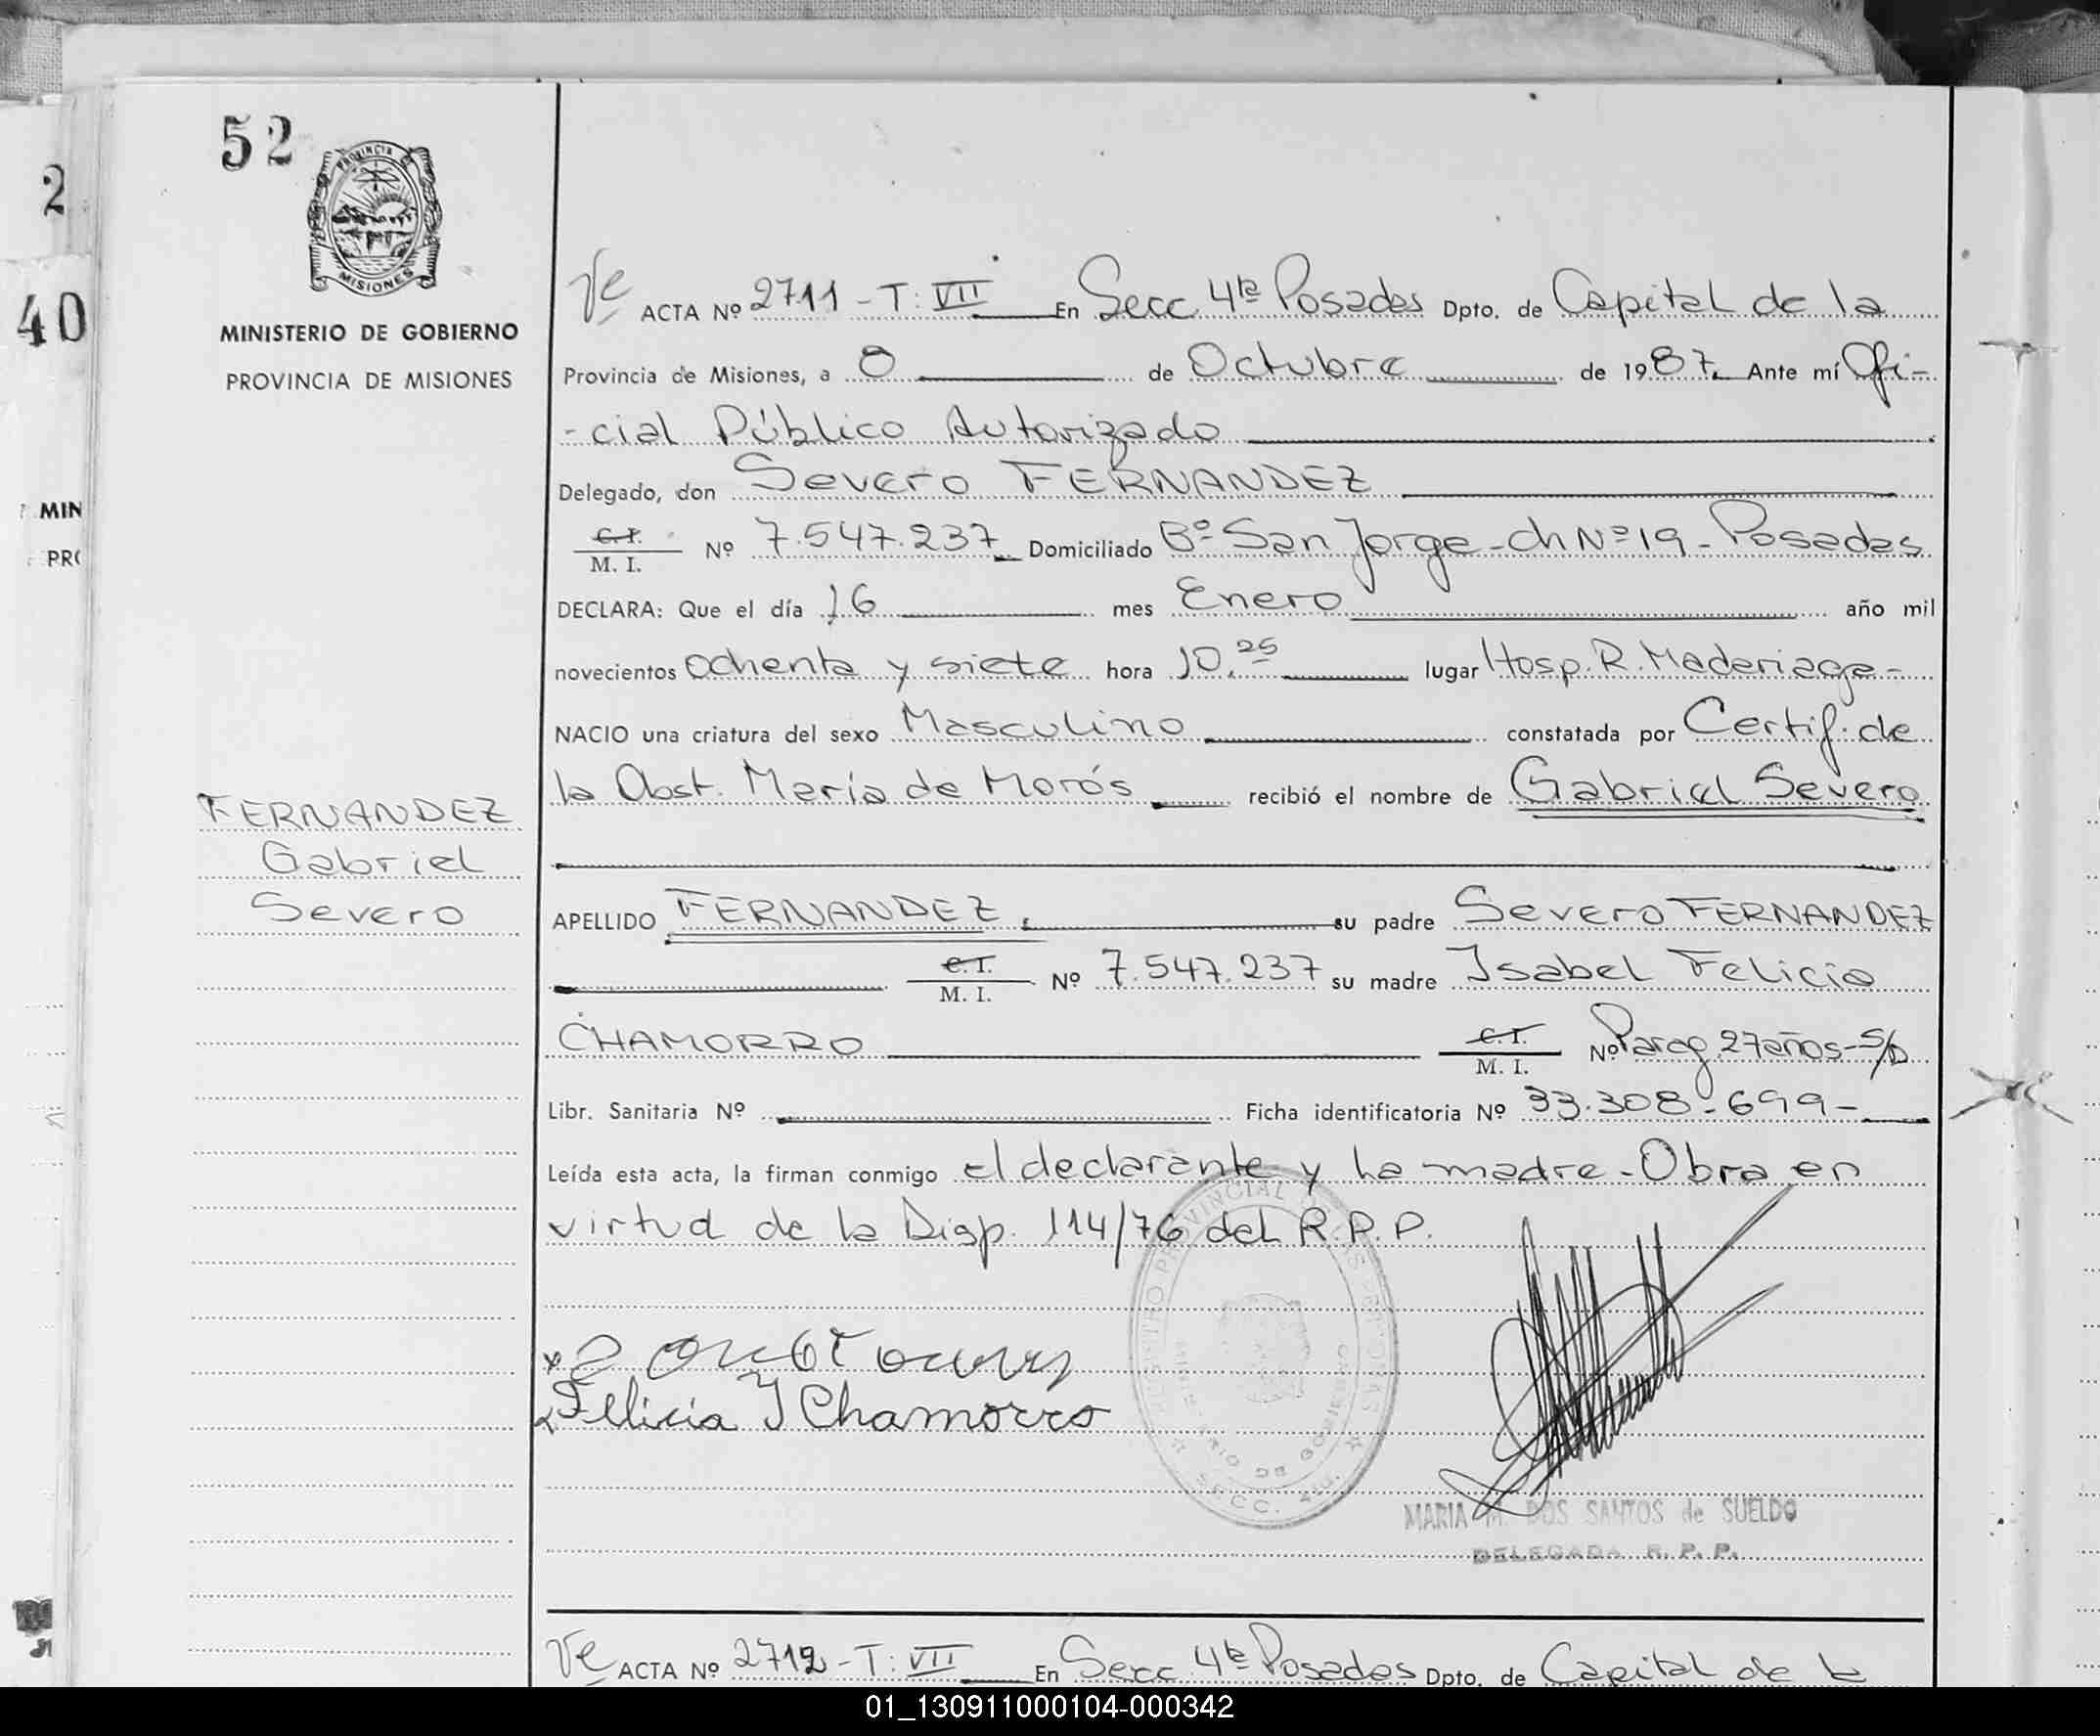 52
PROVINCIA DE
MISIONES
MINISTERIO DE GOBIERNO
PROVINCIA DE MISIONES
2
40
MIN
PRO
Ve ACTA Nº 2711 - T: VII En Secc 4ta Posadas Dpto. de Capital de la
Provincia de Misiones, a 8 de Octubre de 1987. Ante mí Ofi-
-cial Público Autorizado
Delegado, don Severo FERNANDEZ
C.I. M. I. Nº 7.547.237 Domiciliado Bº San Jorge - ch Nº 19 - Posadas
DECLARA: Que el día 16 mes Enero año mil
novecientos ochenta y siete hora 10.25 lugar Hosp. R. Madariaga -
NACIO una criatura del sexo Masculino constatada por Certif. de
la Obst. María de Morós recibió el nombre de Gabriel Severo
FERNANDEZ
Gabriel
Severo
APELLIDO FERNANDEZ, su padre Severo FERNANDEZ
C.I. M. I. Nº 7.547.237 su madre Isabel Felicia
CHAMORRO C.I. M. I. Nº Parag. 27 años - S/D
Libr. Sanitaria Nº Ficha identificatoria Nº 33.308.699 -
Leída esta acta, la firman conmigo el declarante y la madre - Obra en
virtud de la Disp. 114/76 del R.P.P.
Felicia Y Chamorro
REGISTRO PROVINCIAL DE LAS PERSONAS
MINISTERIO DE GOBIERNO
SECC. 4ta.
MARIA M. DOS SANTOS de SUELDO
DELEGADA R. P. P.
Ve ACTA Nº 2712 - T: VII En Secc 4ta Posadas Dpto. de Capital de la
01_130911000104-000342